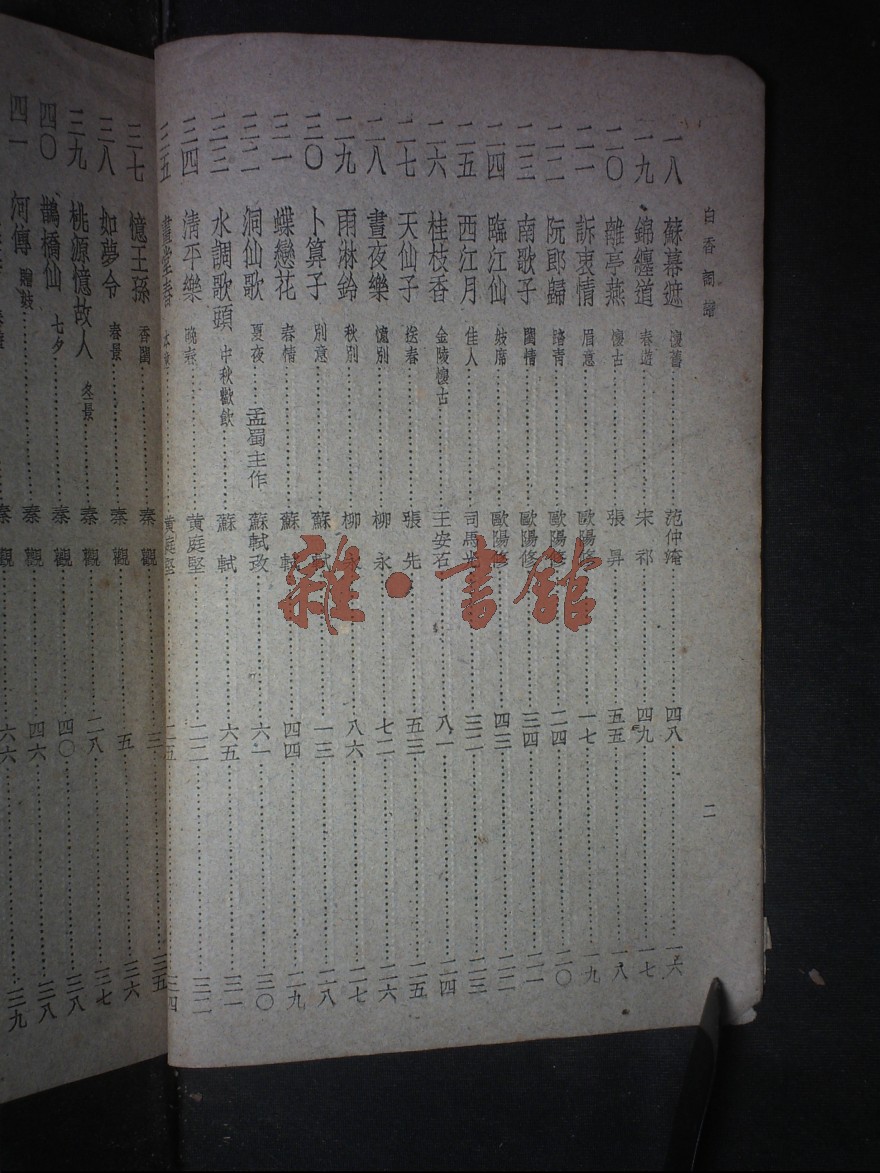 白香詞譜
二
一八 蘇幕遮 懷舊 范仲淹 四八 一六
一九 錦纏道 春遊 宋祁 四九 一七
二〇 離亭燕 懷古 張昇 五五 一八
二一 訴衷情 眉意 歐陽修 一七 一九
二二 阮郎歸 踏青 歐陽修 二四 二〇
二三 南歌子 閨情 歐陽修 三四 二一
二四 臨江仙 妓席 歐陽修 四三 二二
二五 西江月 佳人 司馬光 三二 二三
二六 桂枝香 金陵懷古 王安石 八一 二四
二七 天仙子 送春 張先 五三 二五
二八 晝夜樂 憶別 柳永 七二 二六
二九 雨淋鈴 秋別 柳永 八六 二七
三〇 卜算子 別意 蘇軾 一三 二八
三一 蝶戀花 春情 蘇軾 四四 二九
三二 洞仙歌 夏夜 孟蜀主作 蘇軾改 六一 三〇
三三 水調歌頭 中秋歡飲 蘇軾 六五 三一
三四 清平樂 晚春 黃庭堅 二二 三二
三五 畫堂春 黃庭堅 二五 三四
三七 憶王孫 香閨 秦觀 三 三五
三八 如夢令 春景 秦觀 五 三六
三九 桃源憶故人 冬景 秦觀 二八 三七
四〇 鵲橋仙 七夕 秦觀 四〇 三八
四一 河傳 贈妓 秦觀 四六 三八
秦觀 六六 三九
雜·書館